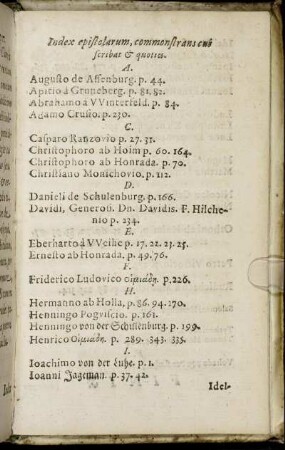 Index epistolarum, commonstrans cui
scribat & quoties.
A.
Augusto de Assenburg. p. 44.
Apitio á Gruneberg. p. 81. 82.
Abrahamo á VVinterfeld. p. 84.
Adamo Crusio. p. 230.
C.
Casparo Ranzovio p. 27. 31.
Christophoro ab Hoim p. 60. 164.
Christophoro ab Honrada. p. 70.
Christiano Monichovio, p. 112.
D.
Danieli de Schulenburg. p. 166.
Davidi, Generosi. Dn. Davidis. F. Hilche-
nio p. 234.
E.
Eberharto á VVeihe p. 17. 21. 23. 25.
Ernesto ab Honrada. p. 49. 76.
F.
Friderico Ludovico p. 226.
H.
Hermanno ab Holla, p. 86. 94. 170.
Henningo Pogviscio. p. 161.
Henningo von der Schulenburg. p. 199.
Henrico p. 289. 343. 335.
I.
Ioachimo von der Luhe. p. 1.
Ioanni Jageman. p. 37. 42.
Idel-